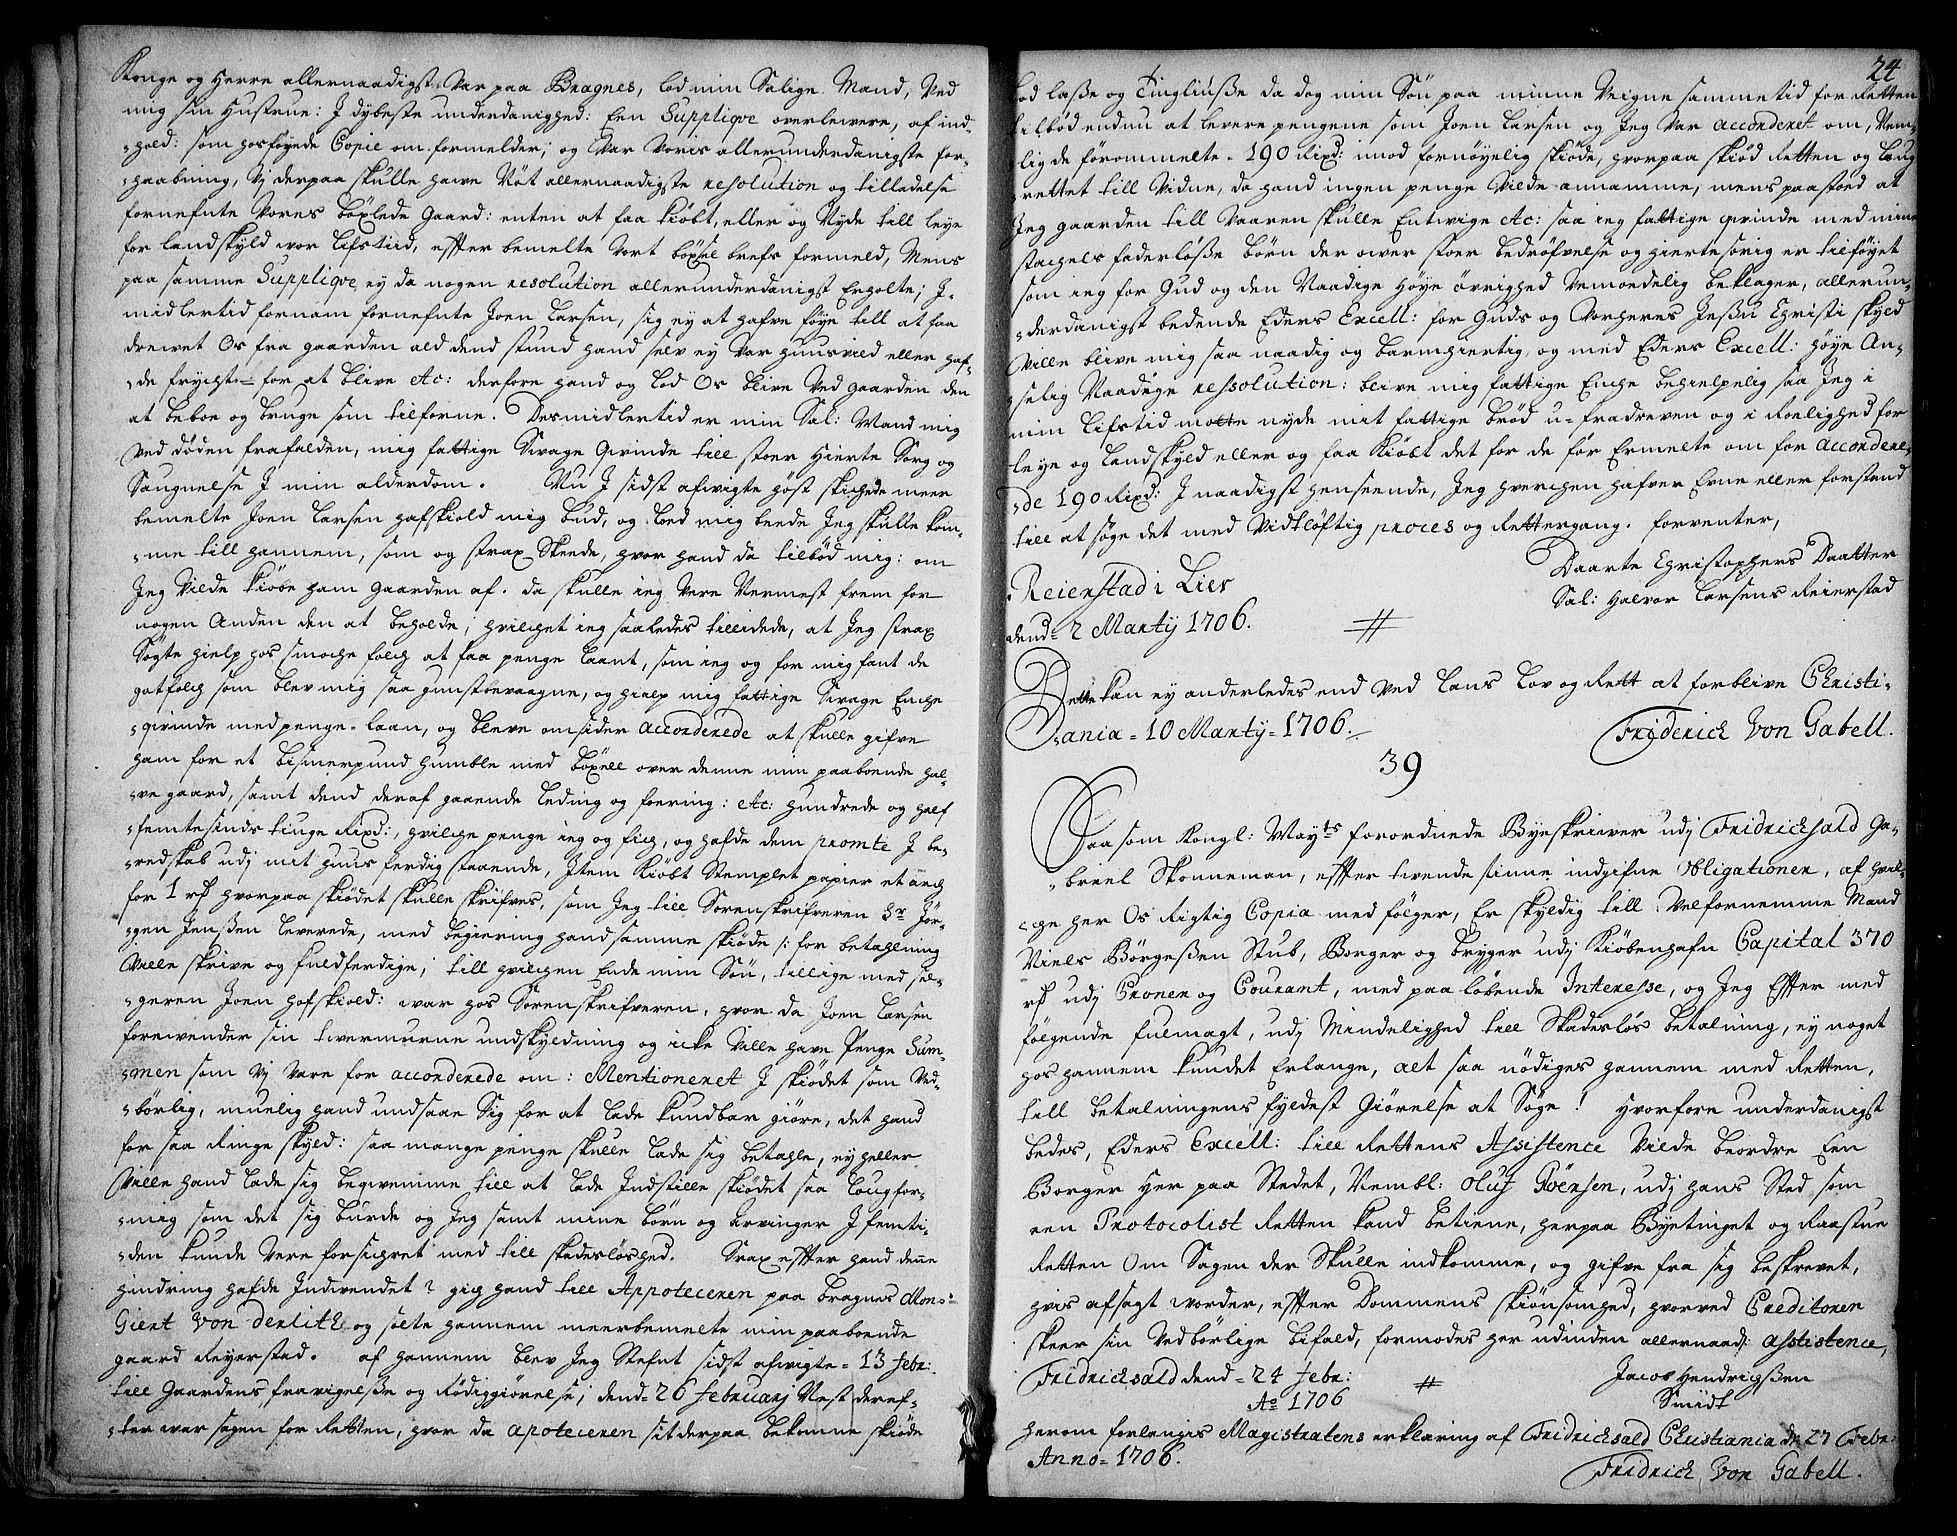 Konge og Herre allernaadigst Var paa Bragnes, lod min Salige Mand, Ved
mig sin Hustrue: I dybeste underdanighed: Een Supplique overlevere, af ind-
-hold: som hosføyede Copie om formelder; og Var Voris allerunderdanigste for-
-haabning, Vj derpaa skulle have Nøt allernaadigste resolution og tilladelse
fornefnte Vores bøxlede Gaard: enten at faa kiøbt, eller og Nyde till leye
for landskyld vor lifstiid, effter bemelte Vort bøxel brefs formeld, Mens
paa samme Supplique ej da nogen resolution allerunderdanigst Erholte; I-
midlertid fornam fornefnte Joen Larsen, sig ey at hafve føye till at haa
drevet Os fra gaarden ald dend stund hand selv ey Var huusvild eller haf-
-de frycht for at blive etc: derfore hand og lod Os blive Ved gaarden den
at beboe og bruge som tilforne. Desmidlertid er min Sal: Mand mig
Ved døden frafalden, mig fattige Svage Qvinde till stoer Hierte Sorg og
Saugnelse I min alderdom. Nu I sidst afvigte høst skichede meer
bemelte Joen Larsen hafskiold mig bud, og loed mig beede Jeg skulle kom-
-me till hannem, som og strax Skeede, hvor hand da tilbød mig: om
Jeg Vilde kiøbe ham gaarden af. da skulle ieg Vere Nermest frem for
nogen Anden den at beholde; hvilchet ieg saaledes tilliidede, at Jeg strax
Søgte hielp hos smoche folch at faa penge laant, som ieg og for mig fant de
gotfolch som blev mig saa gunstbevaagne, og hialp mig fattige Svage Enche
-qvinde med penge-laan, og bleve omsider accorderede at skulle gifve
ham for et bismerpund humble med bøxell over denne min paaboende hal-
-ve gaard, samt dend deraf gaaende leding og foering: etc: hundrede og half
-femtesinds tiuge Rixd:, hvilche penge ieg og fich, og hafde dem promte I be-
-redskab udj mit huus ferdig staaende, Item kiøbt Stemplet papier et arch
for 1 rd hvorpaa skiødet skulle skrifves, som Jeg till Sorenskrifveren Sr Jør-
-gen Jenßen leverede, med begiering hand samme skiøde /: for betahlning
Ville skrive og fuldferdige; till hvilchen Ende min Søn, tillige med sel-
-geren Joen hofskiold: war hos Sorenskrifveren, hvor da Joen Larsen
forevender sin undskyldning og icke Ville have Penge Sum-
-men som Vj Vare for accorderede om: Mentioneret I skiødet som Ved-
-børlig, muelig hand undsaae Sig for at lade kundbar giøre, det hand
for saa Ringe skyld: saa mange penge skulle lade sig betahle, ey heller
Ville hand lade sig beqvemme till at lade Indstille skiødet saa lougfor-
-mig som det sig burde og Jeg samt mine børn og arvinger I femti-
-den kunde Vere forsichret med till skadesløshed. Strax effter hand denne
hindring hafde Indvendet? gich hand till Appoteceren paa bragnes Mons:
Giert Von derlith og solte hannem meerbemelte min paaboende
gaard Reyerstad. af hannem blev Jeg Stefnt sidst afvigte - 13 febr:
till Gaardens fravigelße og Rødiggiørelse; dend - 26 februarj Nest deref-
-ter war sagen for Retten, hvor da apoteceren sit derpaa bekomne skiøde
24
lod laße og Tinglüuße da dog min Søn paa minne Veigne sammetid for Retten
tilbød endnu at levere pengene som Joen Larsen og Jeg Var accorderet om, Nem-
-lig de førommelte - 190 Rixd: imod fornøyelig skiøde, hvorpaa skiød Retten og Laug
-rettet till Vidne, da hand ingen penge Vilde annamme, mens paastoed at
Jeg gaarden till Vaaren skulle Entvige etc: saa ieg fattige qvinde med mine
stachels faderløße børn der over stoer bedrøfvelse og hiertesorig er tilføyet
som ieg for Gud og den Naadige Høye øvrighed Vemoedelig beklager, allerun-
-derdanigst bedende Eders Excell: for Guds og Vorheres Jeßu Christi skyld
Ville blive mig saa naadig og barmhiertig, og med Eders Excell: Høye An-
-selig Naadige ressolution: blive mig fattige Enche behielpelig saa Jeg i
min lifstid motte nyde mit fattige brød u-fradreven og i Roelighed for
leye og landskyld eller og faa kiøbt det for de før Ermelte om for accordere-
-de 190 Rixd: I naadigst henseende, Jeg hverchen hafver Evne eller forstand
till at søge det med Vidtløftig proces og Rettergang. forventer,
Daarte Christophers Daatter
Reierstad i Lier
Sal: Halvor Larsens Reierstad
dend - 2 Martij 1706.
Dette kan ey anderledes end Ved Lans Lov og Rett at forblive Christi-
-ania - 10 Martij - 1706.
Friderich Von Gabell.
39
Saasom Kongl: Mayts forordnede Byeskriver udj Fridrichsald Ga-
-briel Skonneman, effter tvende sinne indgifne Obligationer, af hvil-
-che her Os Rigtig Copia med følger, Er skyldig till Velfornemme Mand
Niels Børgeßen Stub, Borger og brygger udj Kiøbenhafn Capital 370
rd udj Croner og Courant, med paaløbende Interesse, og Jeg Effter med
følgende fulmagt, udj Mindelighed till Skadesløs betalning, ey noget
hos hannem kundet Erlange, alt saa nødiges hannem med Retten,
till betalningens fyldest Giørelse at Søge! Hvorfore underdanigst
bedes, Eders Excell: till Rettens Assistence Vilde beordre Een
Borger her paa Stedet, Nembl: Oluf Goensen, udj hans Sted som
een Protocolist Retten kand betiene, herpaa Byetinget og Raastue
Retten Om Sagen der Skulle indkomme, og gifve fra sig beskrevet,
hvis afsagt worder, effter Dommens skiønsomhed, hvorved Creditoren
skeer sin Vedbørlige bifald, formodes her udinden allernaad: assistence,
Fridrichsald dend - 24 febr:
Jacob Hendrigßen
Ao 1706
Smidt
Herom forlangis Magistratens erklæring af Fridrichsald Christiania d: 27 Febr:
Anno - 1706.
Fridrich Von Gabell.